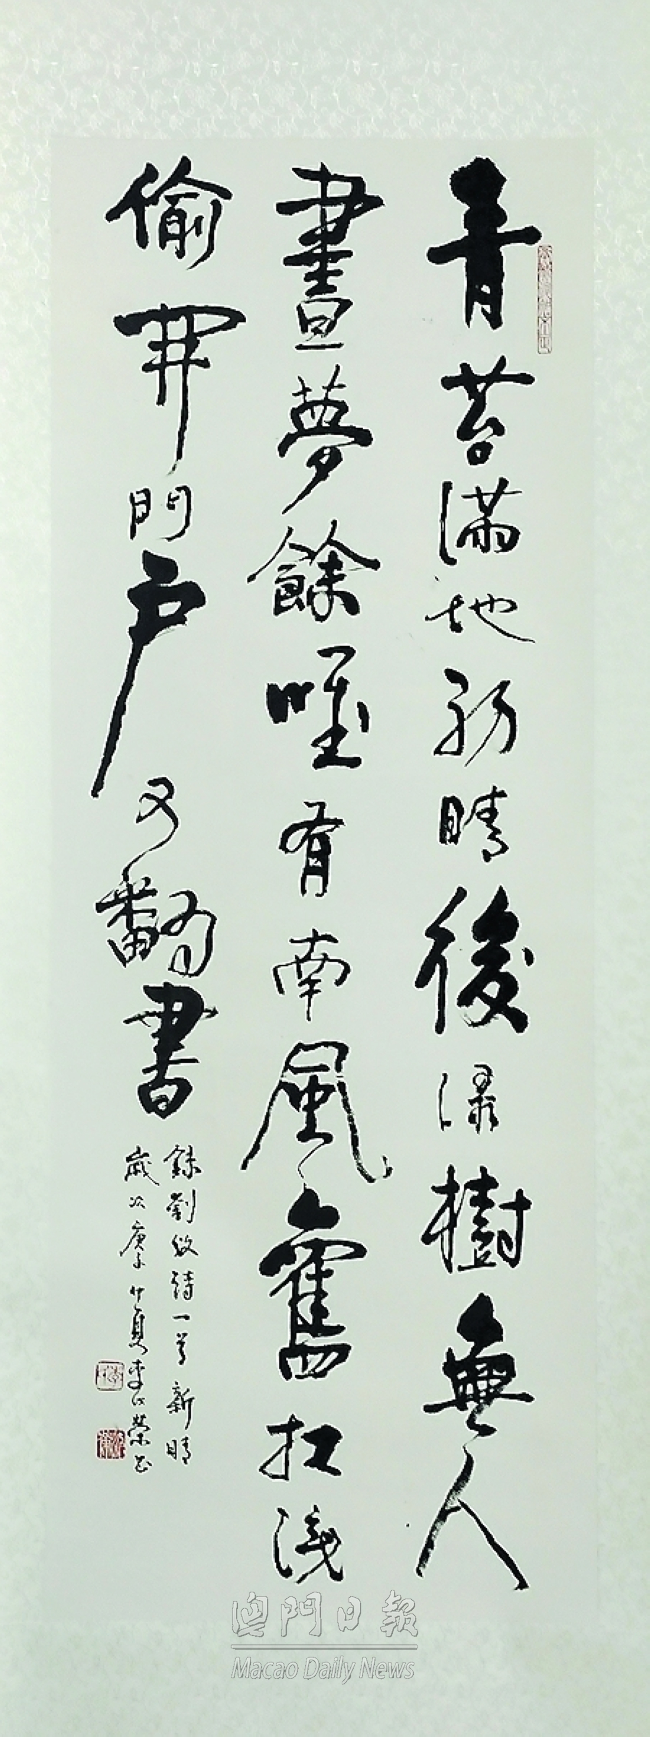 青苔滿地初晴後綠樹無人
晝夢餘唯有南風舊相識
偷開門户又翻書
錄劉攽詩一首新晴
歲次庚子仲夏李榮書
澳門日報
Macao Daily News